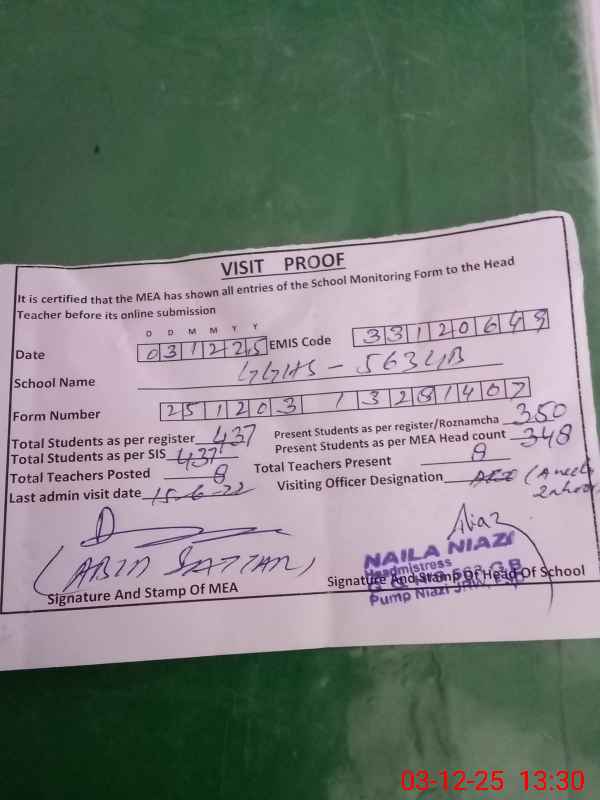 VISIT PROOF
It is certified that the MEA has shown all entries of the School Monitoring Form to the Head
Teacher before its online submission
D D M M Y Y
Date 031225 EMIS Code 33120649
School Name GGHS - 563 GB
Form Number 251203 1 3281407
Total Students as per register 437 Present Students as per register/Roznamcha 350
Total Students as per SIS 437 Present Students as per MEA Head count 348
Total Teachers Posted 8 Total Teachers Present 8
Last admin visit date 15-6-22 Visiting Officer Designation
Signature And Stamp Of MEA
NAILA NIAZI
Headmistress
Pump Niazi
Signature And Stamp Of Head Of School
03-12-25 13:30